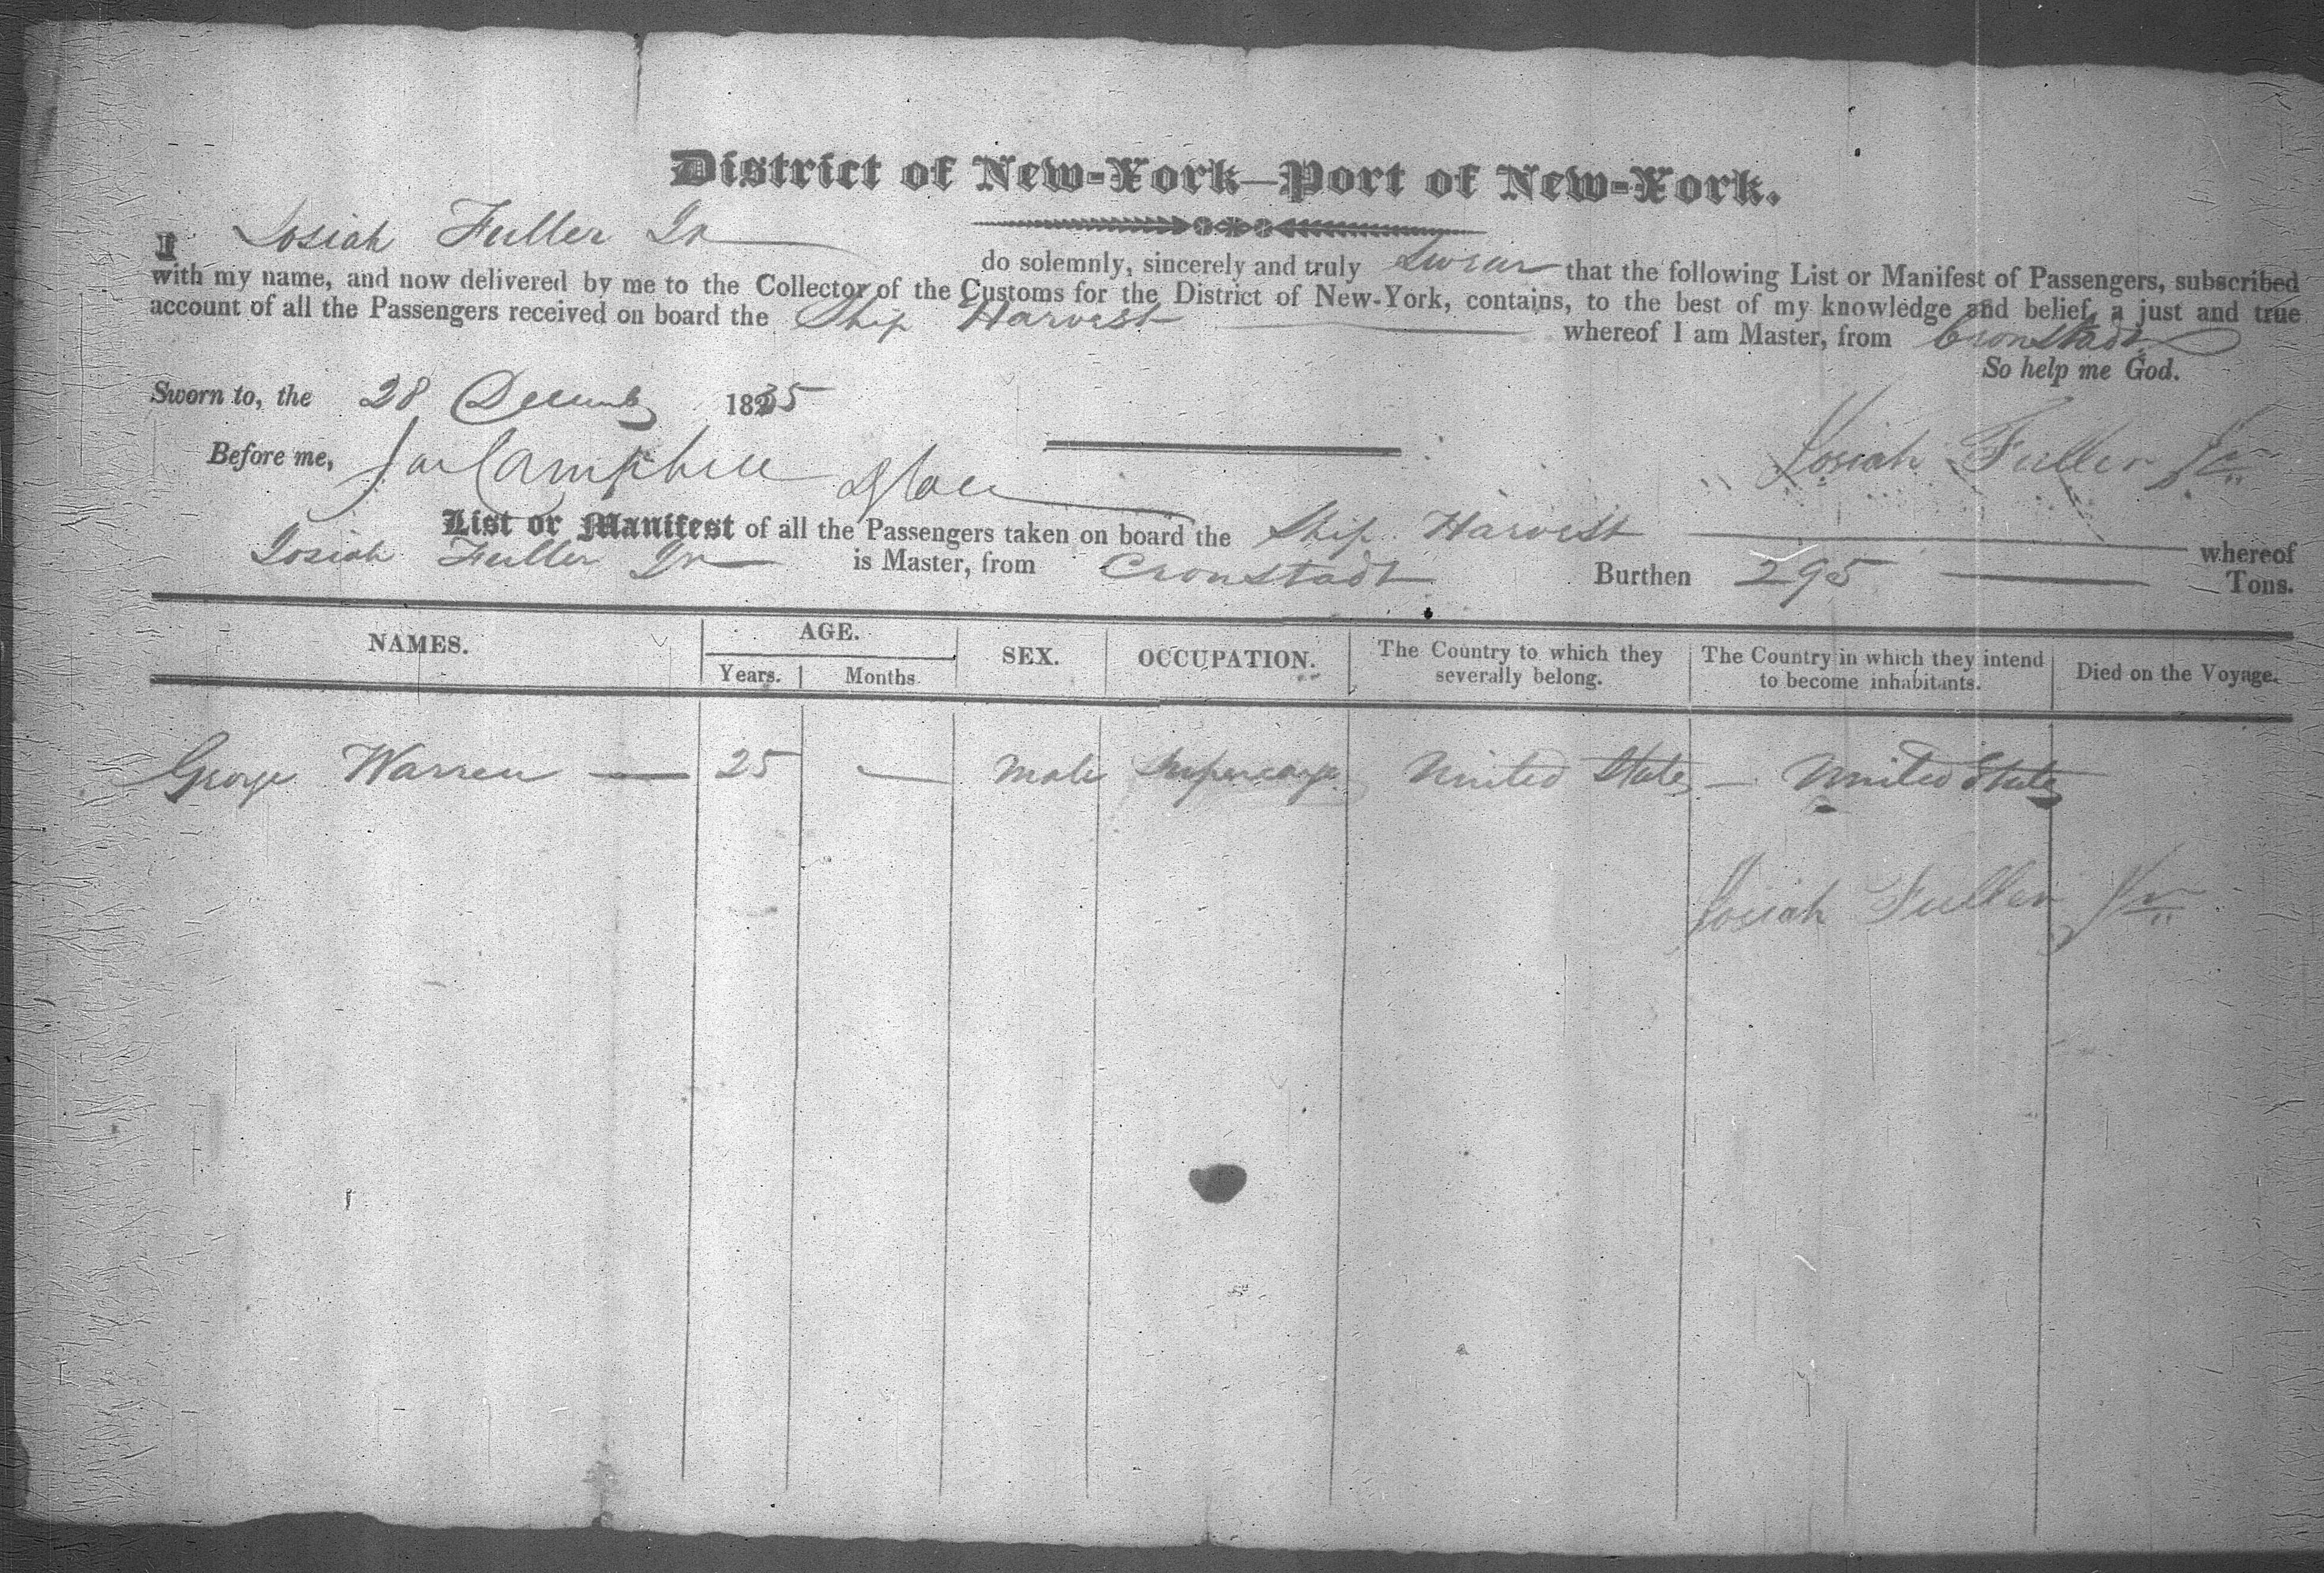 District of New-York—Port of New-York.
I Josiah Fuller Jr do solemnly, sincerely and truly Swear that the following List or Manifest of Passengers, subscribed
with my name, and now delivered by me to the Collector of the Customs for the District of New-York, contains, to the best of my knowledge and belief, a just and true
account of all the Passengers received on board the Ship Harvest whereof I am Master, from Cronstadt
So help me God.
Sworn to, the 28 Decemb 1835
Before me, Campbell
Josiah Fuller Jr
List or Manifest of all the Passengers taken on board the Ship Harvest whereof
Josiah Fuller Jr is Master, from Cronstadt Burthen 295 Tons.
NAMES. AGE. Years. Months. SEX. OCCUPATION. The Country to which they severally belong. The Country in which they intend to become inhabitants. Died on the Voyage.
George Warren — 25 — Male Supercargo United States — United States
Josiah Fuller Jr